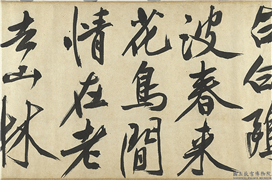 波春来
花鳥間
情在老
去山林
國立故宮博物院